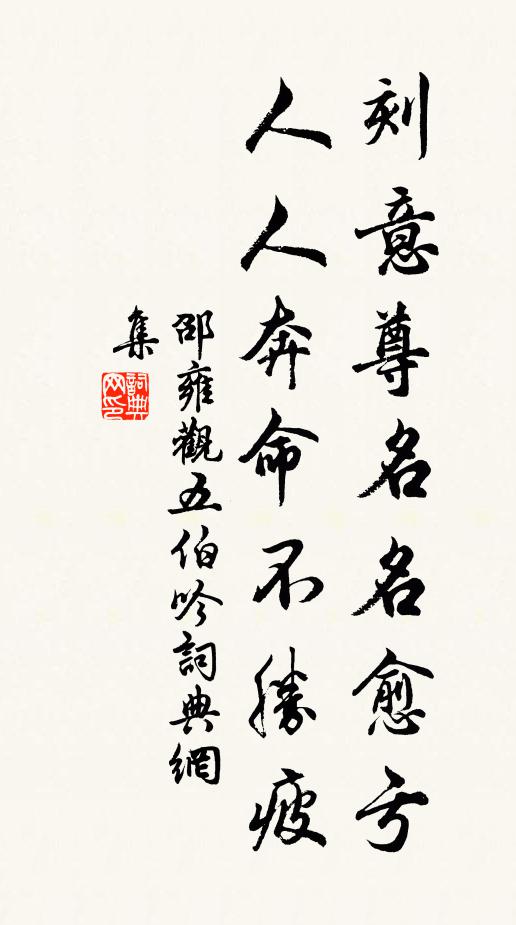 刻意尊名名愈亏
人人奔命不勝疲
邵雍觀五伯吟詞典網
集
詞典
网印